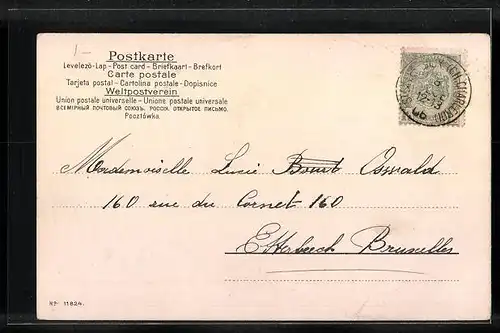 1-
Postkarte
Levelező-Lap - Post card - Briefkaart - Brefkort
Carte postale
Tarjeta postal - Cartolina postale - Dopisnice
Weltpostverein
Union postale universelle - Unione postale universale
ВСЕМІРНЫЙ ПОЧТОВЫЙ СОЮЗЪ. РОССІЯ. ОТКРЫТОЕ ПИСЬМО.
Pocztówka
Mademoiselle Lucie Oswald
160 rue du Cornet 160
Etterbeek Bruxelles
No 11824.